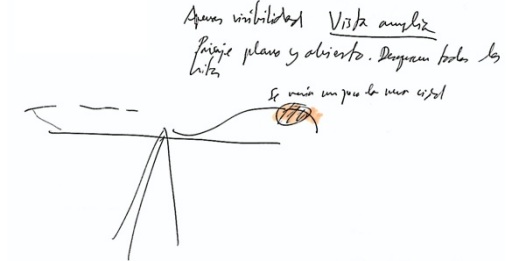 Apenas visibilidad Vista amplia
Paisaje plano y abierto. Desaparecen todos los
hitos
Se un poco la